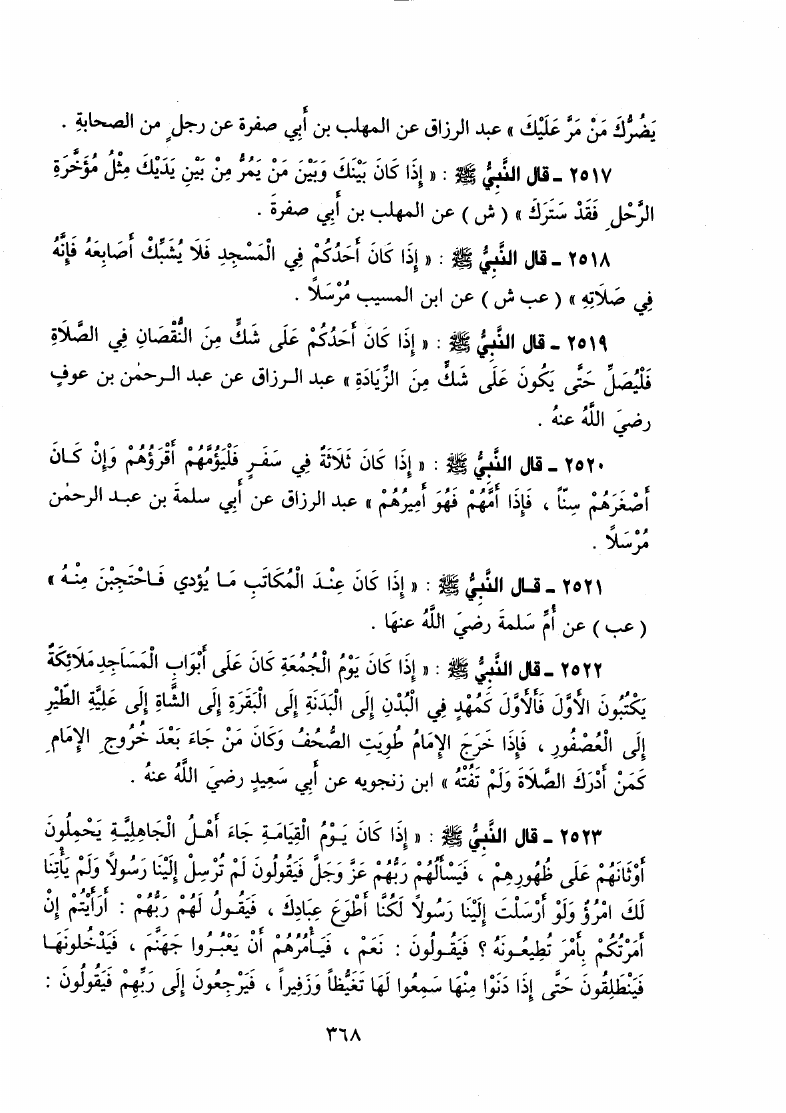 يَضُرُّكَ مَنْ مَرَّ عَلَيْكَ » عبد الرزاق عن المهلب بن أَبي صفرة عن رجلٍ من الصحابةِ .
٢٥١٧ ـ قال النَّبيُّ ﷺ : « إِذَا كَانَ بَيْنَكَ وَبَيْنَ مَنْ يَمُرُّ مِنْ بَيْنِ يَدَيْكَ مِثْلُ مُؤَخَّرَةِ
الرَّحْلِ فَقَدْ سَتَرَكَ » ( ش ) عن المهلب بن أَبي صفرةَ .
٢٥١٨ ـ قال النَّبيُّ ﷺ : « إِذَا كَانَ أَحَدُكُمْ فِي الْمَسْجِدِ فَلَا يُشَبِّكْ أَصَابِعَهُ فَإِنَّهُ
فِي صَلَاتِهِ » ( عب ش ) عن ابن المسيب مُرْسَلًا .
٢٥١٩ ـ قال النَّبيُّ ﷺ : « إِذَا كَانَ أَحَدُكُمْ عَلَى شَكٍّ مِنَ النُّقْصَانِ فِي الصَّلَاةِ
فَلْيُصَلِّ حَتَّى يَكُونَ عَلَى شَكٍّ مِنَ الزِّيَادَةِ » عبد الرزاق عن عبد الرحمٰن بن عوفٍ
رضيَ اللَّهُ عنهُ .
٢٥٢٠ ـ قال النَّبيُّ ﷺ : « إِذَا كَانَ ثَلَاثَةٌ فِي سَفَرٍ فَلْيَؤُمَّهُمْ أَقْرَؤُهُمْ وَإِنْ كَانَ
أَصْغَرَهُمْ سِنّاً ، فَإِذَا أَمَّهُمْ فَهُوَ أَمِيرُهُمْ » عبد الرزاق عن أَبي سلمةَ بن عبد الرحمٰن
مُرْسَلًا .
٢٥٢١ ـ قال النَّبيُّ ﷺ : « إِذَا كَانَ عِنْدَ الْمُكَاتَبِ مَا يُؤدي فَاحْتَجِبْنَ مِنْهُ »
( عب ) عن أُمِّ سَلمةَ رضيَ اللَّهُ عنهَا .
٢٥٢٢ ـ قال النَّبيُّ ﷺ : « إِذَا كَانَ يَوْمُ الْجُمُعَةِ كَانَ عَلَى أَبْوَابِ الْمَسَاجِدِ مَلَائِكَةٌ
يَكْتُبُونَ الأَوَّلَ فَالأَوَّلَ كَمُهْدٍ فِي الْبُدْنِ إِلَى الْبَدَنَةِ إِلَى الْبَقَرَةِ إِلَى الشَّاةِ إِلَى عَلِيَّةِ الطَّيْرِ
إِلَى الْعُصْفُورِ ، فَإِذَا خَرَجَ الإِمَامُ طُوِيَتِ الصُّحُفُ وَكَانَ مَنْ جَاءَ بَعْدَ خُرُوجِ الإِمَامِ
كَمَنْ أَدْرَكَ الصَّلَاةَ وَلَمْ تَفُتْهُ » ابن زنجويه عن أَبي سَعِيدٍ رضيَ اللَّهُ عنهُ .
٢٥٢٣ ـ قال النَّبيُّ ﷺ : « إِذَا كَانَ يَوْمُ الْقِيَامَةِ جَاءَ أَهْلُ الْجَاهِلِيَّةِ يَحْمِلُونَ
أَوْثَانَهُمْ عَلَى ظُهُورِهِمْ ، فَيَسْأَلُهُمْ رَبُّهُمْ عَزَّ وَجَلَّ فَيَقُولُونَ لَمْ تُرْسِلْ إِلَيْنَا رَسُولًا وَلَمْ يَأْتِنَا
لَكَ امْرُؤٌ وَلَوْ أَرْسَلْتَ إِلَيْنَا رَسُولًا لَكُنَّا أَطْوَعَ عِبَادِكَ ، فَيَقُولُ لَهُمْ رَبُّهُمْ : أَرَأَيْتُمْ إِنْ
أَمَرْتُكُمْ بِأَمْرٍ تُطِيعُونَهُ ؟ فَيَقُولُونَ : نَعَمْ ، فَيَأْمُرُهُمْ أَنْ يَعْبُرُوا جَهَنَّمَ ، فَيَدْخُلُونَهَا
فَيَنْطَلِقُونَ حَتَّى إِذَا دَنَوْا مِنْهَا سَمِعُوا لَهَا تَغَيُّظاً وَزَفِيراً ، فَيَرْجِعُونَ إِلَى رَبِّهِمْ فَيَقُولُونَ :
٣٦٨